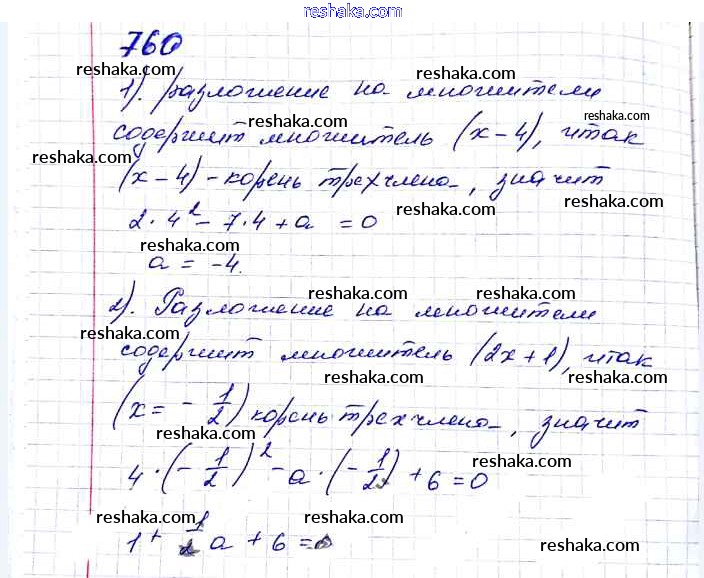 reshaka.com
760
reshaka.com reshaka.com
1). разложение на множители
reshaka.com reshaka.com
содержит множитель (x-4), итак
reshaka.com
(x-4) - корень трехчлена, значит
reshaka.com reshaka.com
2·4² - 7·4 + a = 0
reshaka.com reshaka.com
a = -4.
reshaka.com reshaka.com
2). Разложение на множители
reshaka.com
содержит множитель (2x+1), итак
reshaka.com reshaka.com
(x = -1/2) корень трехчлена, значит
reshaka.com
4·(-1/2)² - a·(-1/2) + 6 = 0
reshaka.com reshaka.com
1 + 1/2 a + 6 = 0
reshaka.com